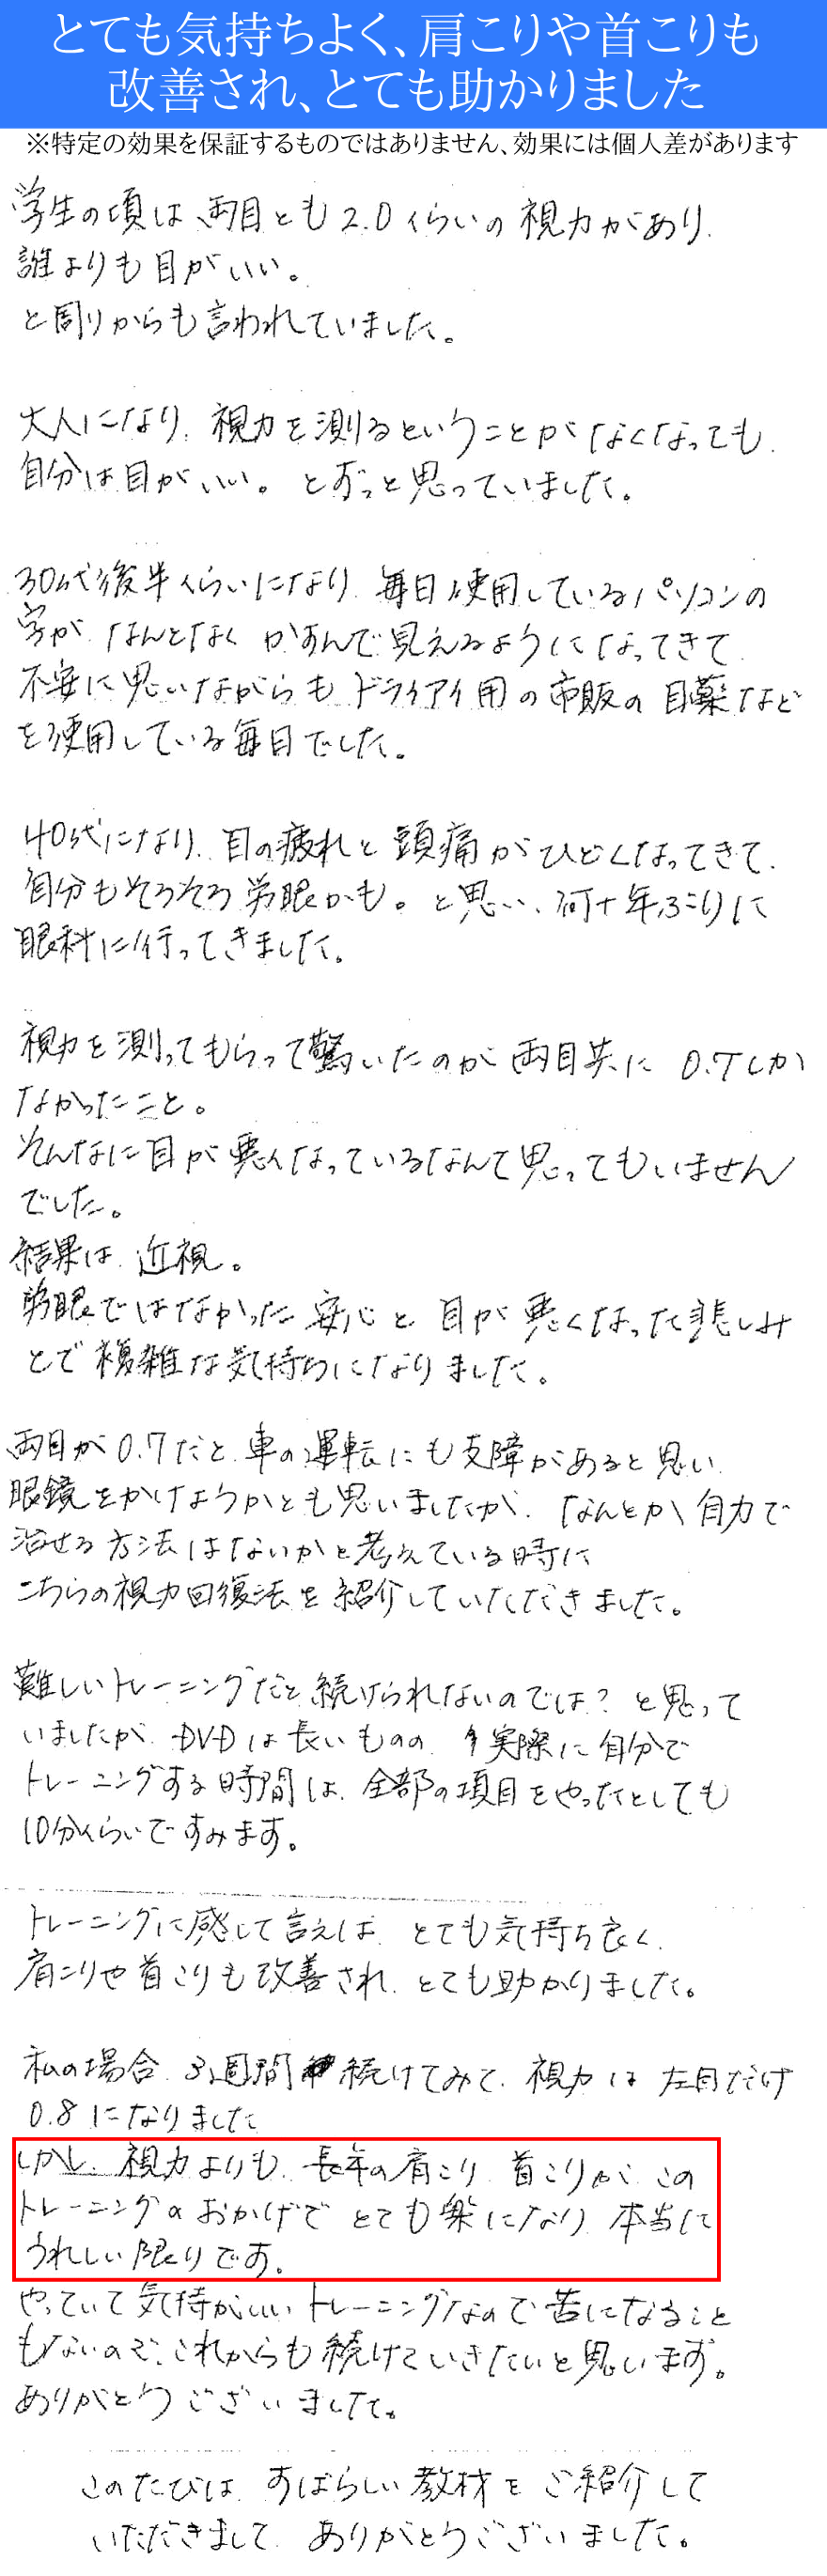 とても気持ちよく、肩こりや首こりも
改善され、とても助かりました
※特定の効果を保証するものではありません、効果には個人差があります
学生の頃は、両目とも2.0くらいの視力があり、
誰よりも目がいい。
と周りからも言われていました。
大人になり、視力を測るということがなくなっても、
自分は目がいい。とずっと思っていました。
30代後半くらいになり、毎日使用しているパソコンの
字が、なんとなくかすんで見えるようになってきて、
不安に思いながらもドライアイ用の市販の目薬など
を使用している毎日でした。
40代になり、目の疲れと頭痛がひどくなってきて、
自分もそろそろ労眼かも。と思い、何十年ぶりに
眼科に行ってきました。
視力を測ってもらって驚いたのが両目共に0.7しか
なかったこと。
そんなに目が悪くなっているなんて思ってもいません
でした。
結果は、近視。
労眼ではなかった安心と目が悪くなった悲しみ
とで複雑な気持ちになりました。
両目が0.7だと、車の運転にも支障があると思い、
眼鏡をかけようかとも思いましたが、なんとか自力で
治せる方法はないかと考えている時に
こちらの視力回復法を紹介していただきました。
難しいトレーニングだと続けられないのでは?と思って
いましたが、DVDは長いものの、実際に自分で
トレーニングする時間は、全部の項目をやったとしても
10分くらいですみます。
トレーニングに感して言えば、とても気持ち良く、
肩こりや首こりも改善され、とても助かりました。
私の場合、3週間続けてみて、視力は左目だけ
0.8になりました
しかし、視力よりも、長年の肩こり、首こりが、この
トレーニングのおかげでとても楽になり、本当に
うれしい限りです。
やっていて気持がいいトレーニングなので苦になること
もないので、これからも続けていきたいと思います。
ありがとうございました。
このたびは、すばらしい教材をご紹介して
いただきまして、ありがとうございました。